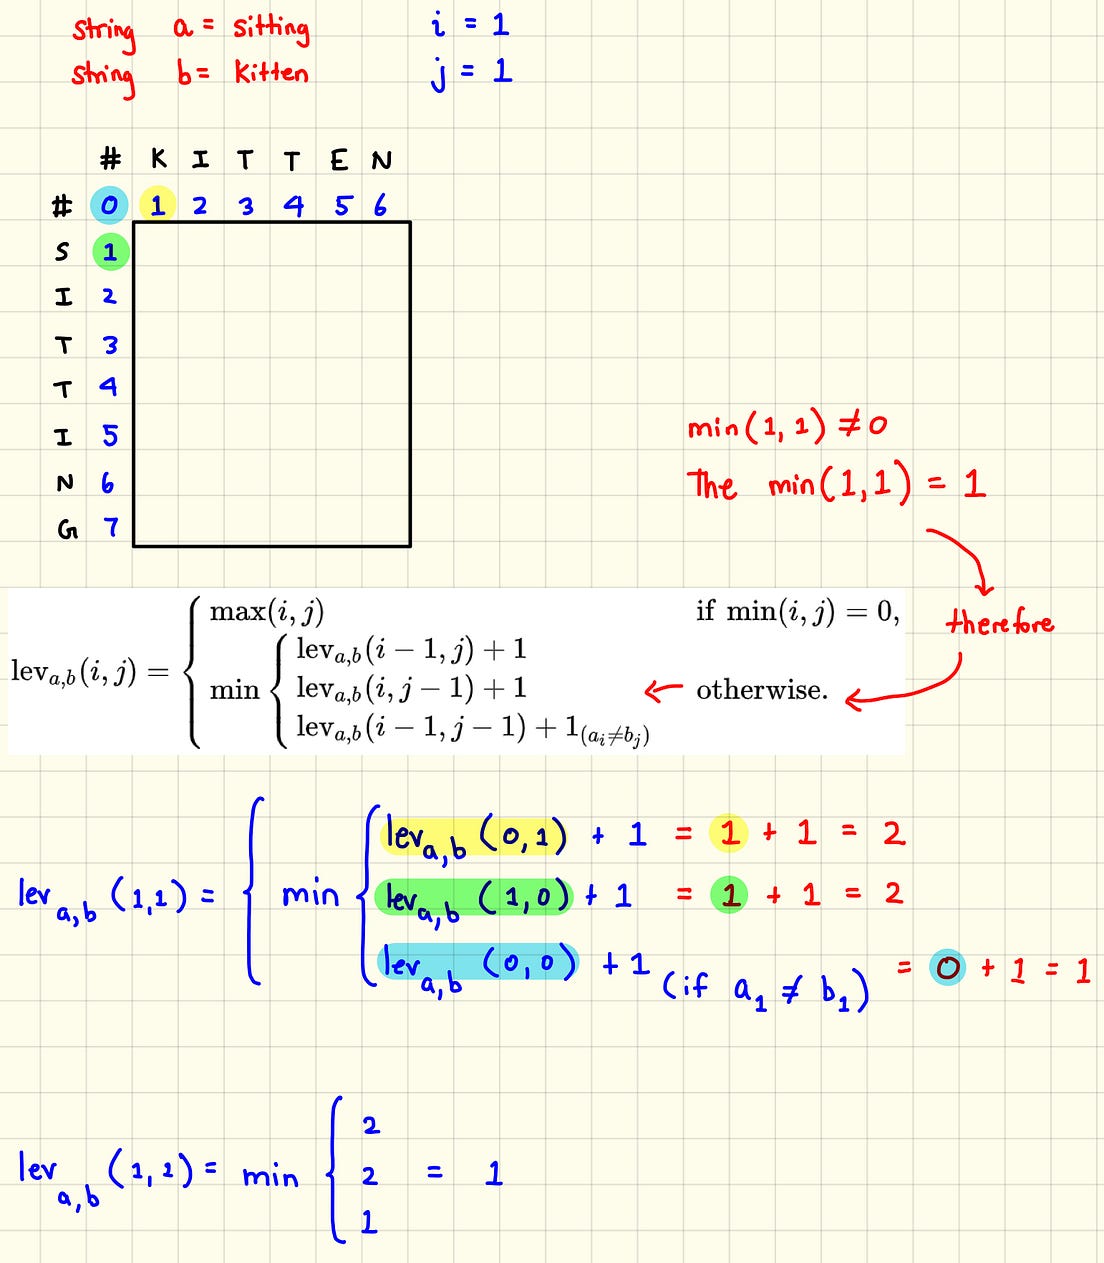 string a = sitting i = 1
string b = kitten j = 1
# K I T T E N
# 0 1 2 3 4 5 6
S 1
I 2
T 3
T 4
I 5
N 6
G 7
min(1, 1) ≠ 0
The min(1,1) = 1
therefore
lev_{a,b}(i, j) = { max(i, j) if min(i, j) = 0,
min { lev_{a,b}(i − 1, j) + 1
lev_{a,b}(i, j − 1) + 1 ← otherwise.
lev_{a,b}(i − 1, j − 1) + 1_{(a_i≠b_j)}
lev_{a,b} (1,1) = { min { lev_{a,b} (0,1) + 1 = 1 + 1 = 2
lev_{a,b} (1,0) + 1 = 1 + 1 = 2
lev_{a,b} (0,0) + 1 (if a_1 ≠ b_1) = 0 + 1 = 1
lev_{a,b} (1,1) = min { 2
2 = 1
1